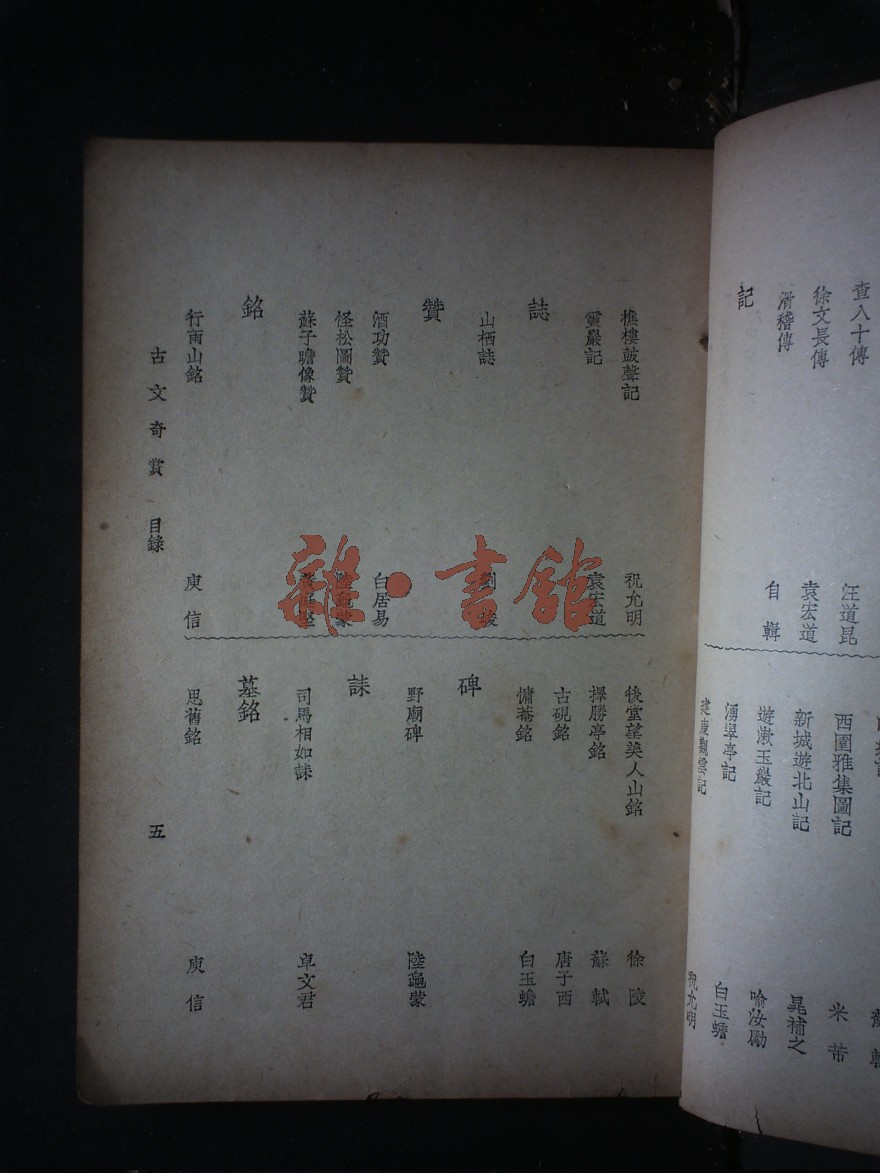 查八十傳 汪道昆
徐文長傳 袁宏道
滑稽傳 自輯
記
西園雅集圖記 米芾
新城遊北山記 晁補之
遊漱玉巖記 喻汝勵
湧翠亭記 白玉蟾
建康觀雲記 祝允明
樵樓鼓聲記 祝允明
靈巖記 袁宏道
誌
山栖誌
贊
酒功贊 白居易
怪松圖贊 陸龜蒙
蘇子瞻像贊
銘
行雨山銘 庾信
後堂望美人山銘 徐陵
擇勝亭銘 蘇軾
古硯銘 唐子西
慵菴銘 白玉蟾
碑
野廟碑 陸龜蒙
誄
司馬相如誄 卓文君
墓銘
思舊銘 庾信
古文奇賞 目錄 五
雜·書館